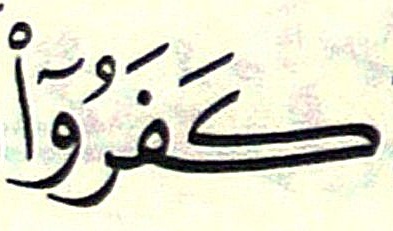 كَفَرُوٓا۟